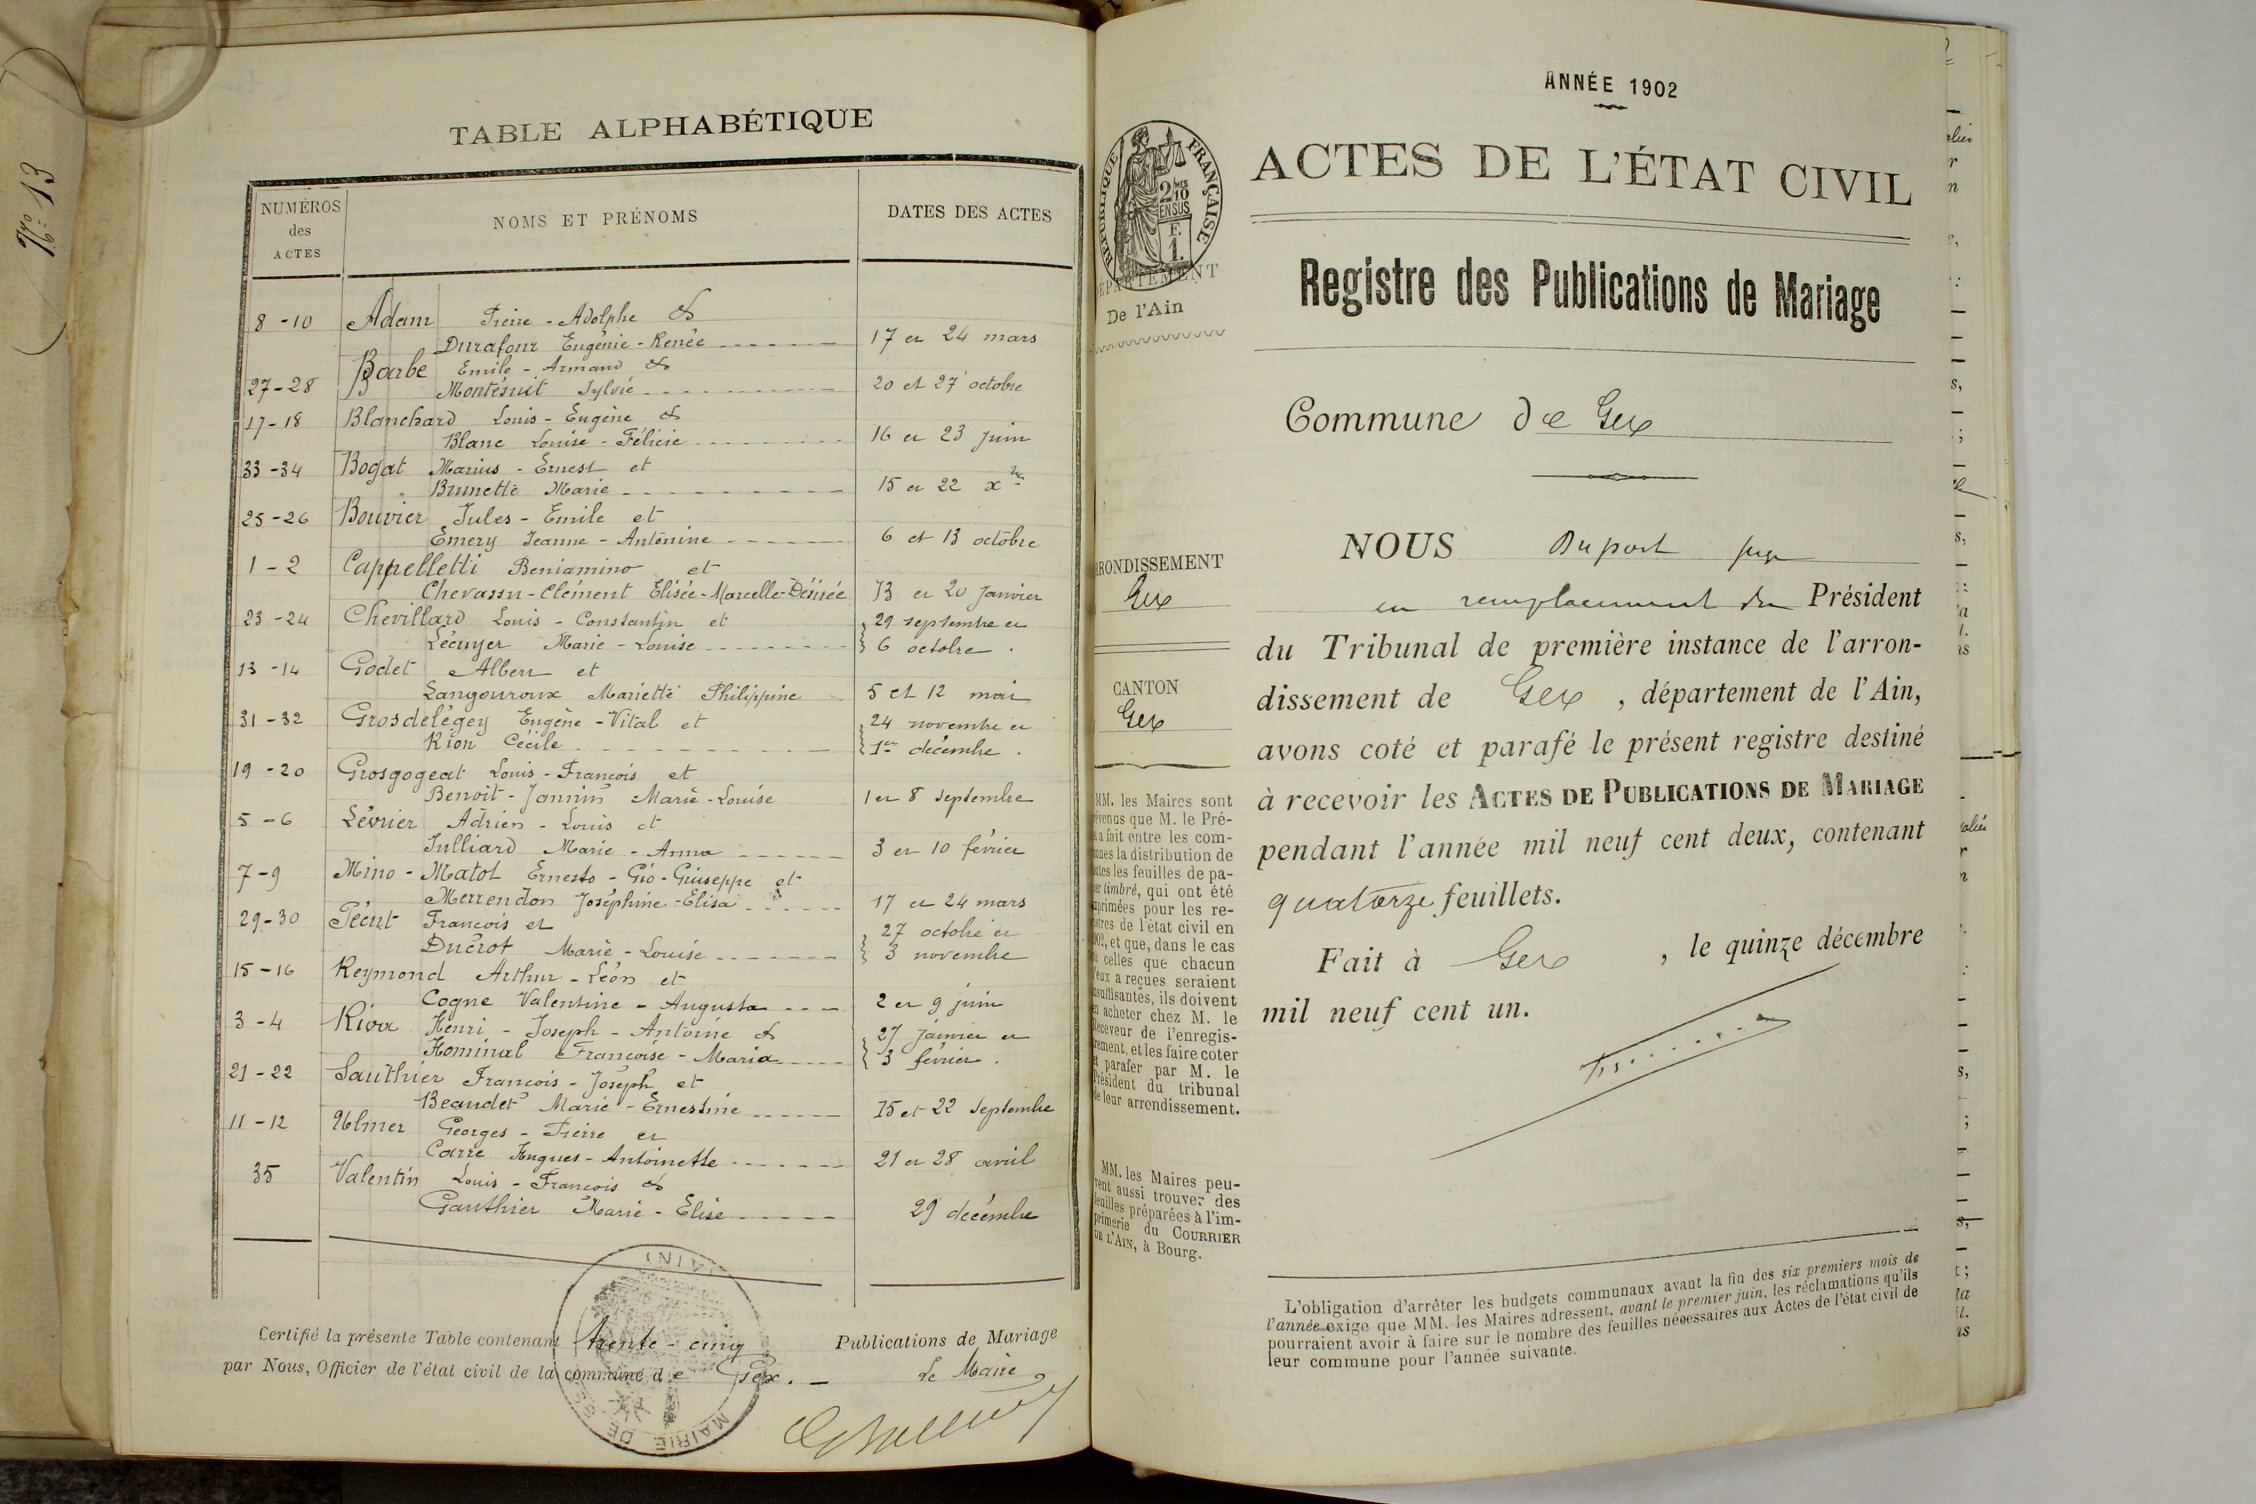 N° 13
TABLE ALPHABÉTIQUE
NUMÉROS des ACTES
NOMS ET PRÉNOMS
DATES DES ACTES
8 - 10 Adam Pierre - Adolphe &
Durafour Eugénie - Renée 17 et 24 mars
27 - 28 Barbe Emile - Armand &
Montésuit Sylvie 20 et 27 octobre
17 - 18 Blanchard Louis - Eugène &
Blanc Louise - Félicie 16 et 23 juin
33 - 34 Bogat Marius - Ernest et
Brunette Marie 15 et 22 xbre
25 - 26 Bouvier Jules - Emile et
Emery Jeanne - Antonine 6 et 13 octobre
1 - 2 Cappelletti Beniamino et
Chevassu - Clément Elisée - Marcelle - Désirée 13 et 20 Janvier
23 - 24 Chevillard Louis - Constantin et 29 septembre et
Lécuyer Marie - Louise 6 octobre.
13 - 14 Godet Albert et
Langouroux Mariette Philippine 5 et 12 mai
31 - 32 Grosdelégey Eugène - Vital et 24 novembre et
Rion Cécile 1er décembre.
19 - 20 Grosgogeat Louis - François et
Benoit - Jannin Marie - Louise 1 et 8 Septembre
5 - 6 Lévrier Adrien - Louis et
Julliard Marie - Anna 3 et 10 février
7 - 9 Mino - Matot Ernesto - Gio - Giuseppe et
Merrendon Joséphine - Elisa 17 et 24 mars
29 - 30 Pécut François et 27 octobre et
Ducrot Marie - Louise 3 novembre
15 - 16 Reymond Arthur - Léon et
Cogne Valentine - Augusta 2 et 9 juin
3 - 4 Rioux Henri - Joseph - Antoine & 27 janvier et
Hominal Françoise - Maria 3 février.
21 - 22 Sauthier François - Joseph et
Beaudet Marie - Ernestine 15 et 22 Septembre
11 - 12 Ulmer Georges - Pierre et
Carre Hugues - Antoinette 21 et 28 avril
35 Valentin Louis - François &
Gauthier Marie - Elise 29 décembre
Certifié la présente Table contenant trente - cinq Publications de Mariage
par Nous, Officier de l'état civil de la commune de Gex.
Le Maire
MAIRIE DE GEX (AIN)
ANNÉE 1902
RÉPUBLIQUE FRANÇAISE
2/10 EN SUS
F. 1.
DÉPARTEMENT
De l'Ain
ACTES DE L'ÉTAT CIVIL
Registre des Publications de Mariage
Commune de Gex
ARRONDISSEMENT
Gex
CANTON
Gex
MM. les Maires sont
prévenus que M. le Pré-
fet a fait entre les com-
munes la distribution de
toutes les feuilles de pa-
pier timbré, qui ont été
imprimées pour les re-
gistres de l'état civil en
1902, et que, dans le cas
où celles que chacun
d'eux a reçues seraient
insuffisantes, ils doivent
en acheter chez M. le
Receveur de l'enregis-
trement, et les faire coter
et parafer par M. le
Président du tribunal
de leur arrondissement.
MM. les Maires peu-
vent aussi trouver des
feuilles préparées à l'im-
primerie du COURRIER
DE L'AIN, à Bourg.
NOUS Duport juge
en remplacement du Président
du Tribunal de première instance de l'arron-
dissement de Gex , département de l'Ain,
avons coté et parafé le présent registre destiné
à recevoir les ACTES DE PUBLICATIONS DE MARIAGE
pendant l'année mil neuf cent deux, contenant
quatorze feuillets.
Fait à Gex , le quinze décembre
mil neuf cent un.
L'obligation d'arrêter les budgets communaux avant la fin des six premiers mois de
l'année exige que MM. les Maires adressent, avant le premier juin, les réclamations qu'ils
pourraient avoir à faire sur le nombre des feuilles nécessaires aux Actes de l'état civil de
leur commune pour l'année suivante.